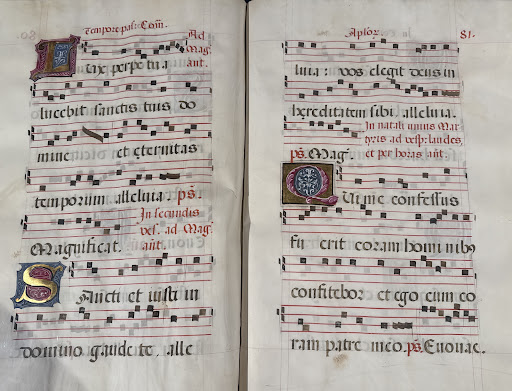 Tempore pas: Com̄.
Ad
Mag.
Lux perpetua ant.
lucebit sanctis tuis do
mine et eternitas
temporum alleluia. ps̄.
In secundis
ves. ad Mag.
Magnificat. ant.
Sancti et iusti in
domino gaudete, alle
Aplor̄ 81.
luia vos elegit deus in
hereditatem sibi, alleluia.
In natali unius Mar
tyris ad vesp: laudes,
et per horas ant.
ps̄. Mag.
Qui me confessus
fuerit coram hominib
confitebor et ego eum co
ram patre meo. ps̄. Euouae.